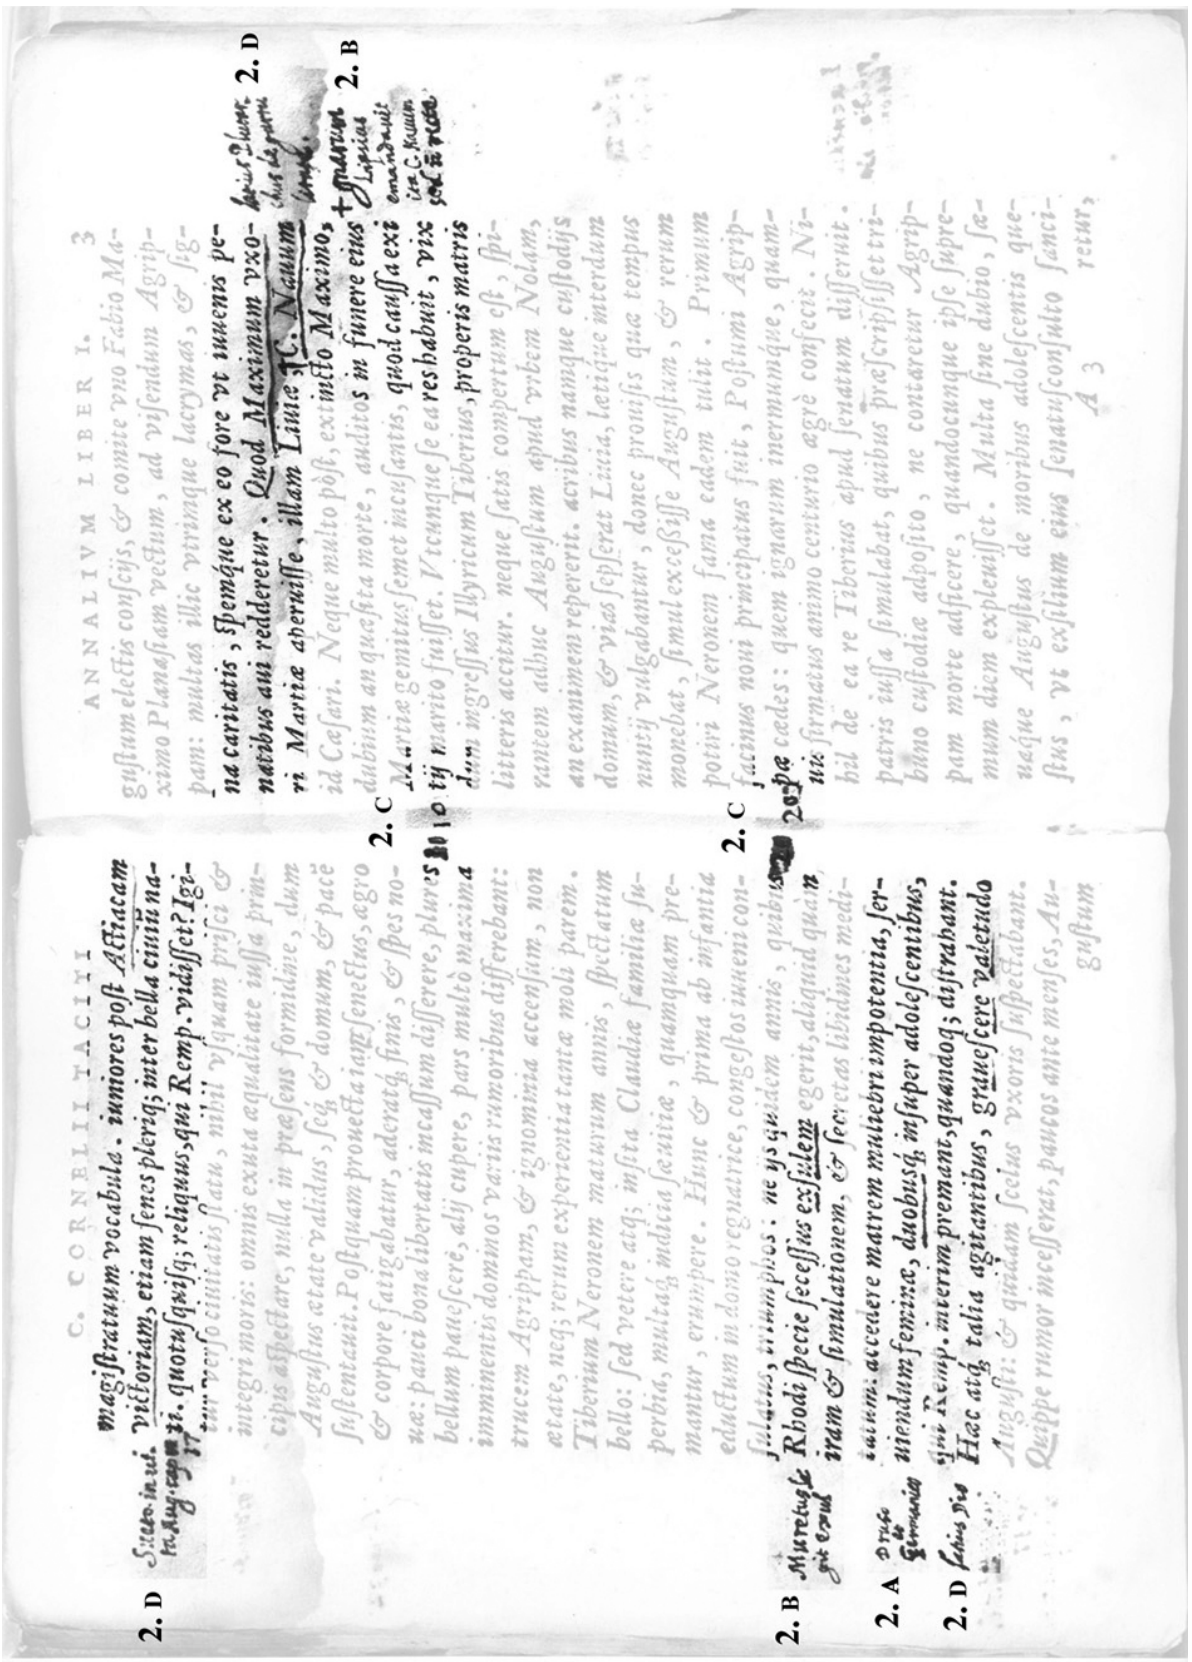 C. CORNELII TACITI
magiſtratuum vocabula. iuniores poſt Actiacam
victoriam, etiam ſenes pleriq; inter bella ciuiũ na-
ti. quotuſquiſq; reliquus, qui Remp. vidiſſet? Igi-
tur verſo ciuitatis ſtatu, nihil vſquam priſci &
integri moris: omnis exuta æqualitate iuſſa prin-
cipis aſpectare, nulla in præſens formidine, dum
Auguſtus ætate validus, ſeq́; & domum, & pacẽ
ſuſtentauit. Poſtquam prouecta iam ſenectus, ægro
& corpore fatigabatur, aderatq́; finis, & ſpes no-
uæ: pauci bona libertatis incaſſum diſſerere, plures
bellum paueſcere, alij cupere, pars multò maxima
imminentis dominos variis rumoribus differebant:
trucem Agrippam, & ignominia accenſum, non
ætate, neq; rerum experientia tantæ moli parem.
Tiberium Neronem maturum annis, ſpectatum
bello: ſed vetere atq; inſita Claudiæ familiæ ſu-
perbia, multaq́; indicia ſæuitiæ, quamquam pre-
mantur, erumpere. Hunc & prima ab infantia
eductum in domo regnatrice, congeſtos iuueni con-
ſulatus, triumphos: ne ijs quidem annis, quibus
Rhodi ſpecie ſeceſſus exſulem egerit, aliquid quàm
iram & ſimulationem, & ſecretas libidines medi-
tatum: accedere matrem muliebri impotentia, ſer-
uiendum feminæ, duobusq́; inſuper adoleſcentibus,
qui Remp. interim premant, quandoq; diſtrahant.
Hæc atq́; talia agitantibus, graueſcere valetudo
Auguſti: & quidam ſcelus vxoris ſuſpectabant.
Quippe rumor inceſſerat, paucos ante menſes, Au-
guſtum
2. D
Sueto. in ui.
ta Aug. cap
17
2. B
Muretus le
git exul
2. A
Druso
&
Germanico
2. D
ſatius Dio
ANNALIVM LIBER I. 3
guſtum electis conſcijs, & comite vno Fabio Ma-
ximo Planaſiam vectum, ad viſendum Agrip-
pam: multas illic vtrinque lacrymas, & ſig-
na caritatis, ſpemq́ue ex eo fore vt iuuenis pe-
natibus aui redderetur. Quod Maximum vxo-
ri Martiæ aperuiſſe, illam Liuiæ, †C. Nauum
id Cæſari. Neque multo pòſt, extincto Maximo,
dubium an quæſita morte, auditos in funere eius
Martiæ gemitus ſemet incuſantis, quod cauſſa exi
tij marito fuiſſet. Vtcunque ſe ea res habuit, vix
dum ingreſſus Illyricum Tiberius, properis matris
litteris accitur. neque ſatis compertum eſt, ſpi-
rantem adhuc Auguſtum apud vrbem Nolam,
an exanimem repererit. acribus namque cuſtodijs
domum, & vias ſepſerat Liuia, lætique interdum
nuntij vulgabantur, donec prouiſis quæ tempus
monebat, ſimul exceſſiſſe Auguſtum, & rerum
potiri Neronem fama eadem tulit. Primum
facinus noui principatus fuit, Poſtumi Agrip-
pæ cædes: quem ignarum inermumque, quam-
uis firmatus animo centurio ægrè confecit. Ni-
hil de ea re Tiberius apud ſenatum diſſeruit.
patris iuſſa ſimulabat, quibus præſcripſiſſet tri-
buno cuſtodiæ adpoſito, ne contaretur Agrip-
pam morte adficere, quandocunque ipſe ſupre-
mum diem expleuiſſet. Multa ſine dubio, ſæ-
uaque Auguſtus de moribus adoleſcentis que-
ſtus, vt exſilium eius ſenatuſconſulto ſanci-
A 3 retur,
2. D
2. B
+ gnarum
Lipsius
emandauit
ita C. Nauum
2. C
10
2. C
20